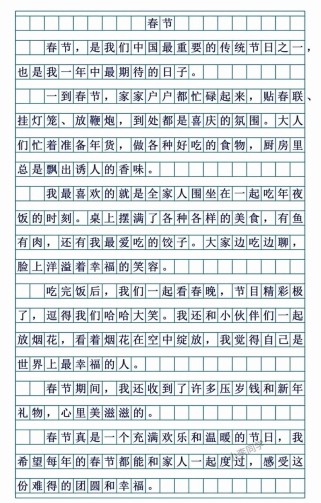 春节
春节，是我们中国最重要的传统节日之一，
也是我一年中最期待的日子。
一到春节，家家户户都忙碌起来，贴春联、
挂灯笼、放鞭炮，到处都是喜庆的氛围。大人
们忙着准备年货，做各种好吃的食物，厨房里
总是飘出诱人的香味。
我最喜欢的就是全家人围坐在一起吃年夜
饭的时刻。桌上摆满了各种各样的美食，有鱼
有肉，还有我最爱吃的饺子。大家边吃边聊，
脸上洋溢着幸福的笑容。
吃完饭后，我们一起看春晚，节目精彩极
了，逗得我们哈哈大笑。我还和小伙伴们一起
放烟花，看着烟花在空中绽放，我觉得自己是
世界上最幸福的人。
春节期间，我还收到了许多压岁钱和新年
礼物，心里美滋滋的。
春节真是一个充满欢乐和温暖的节日，我
希望每年的春节都能和家人一起度过，感受这
份难得的团圆和幸福。